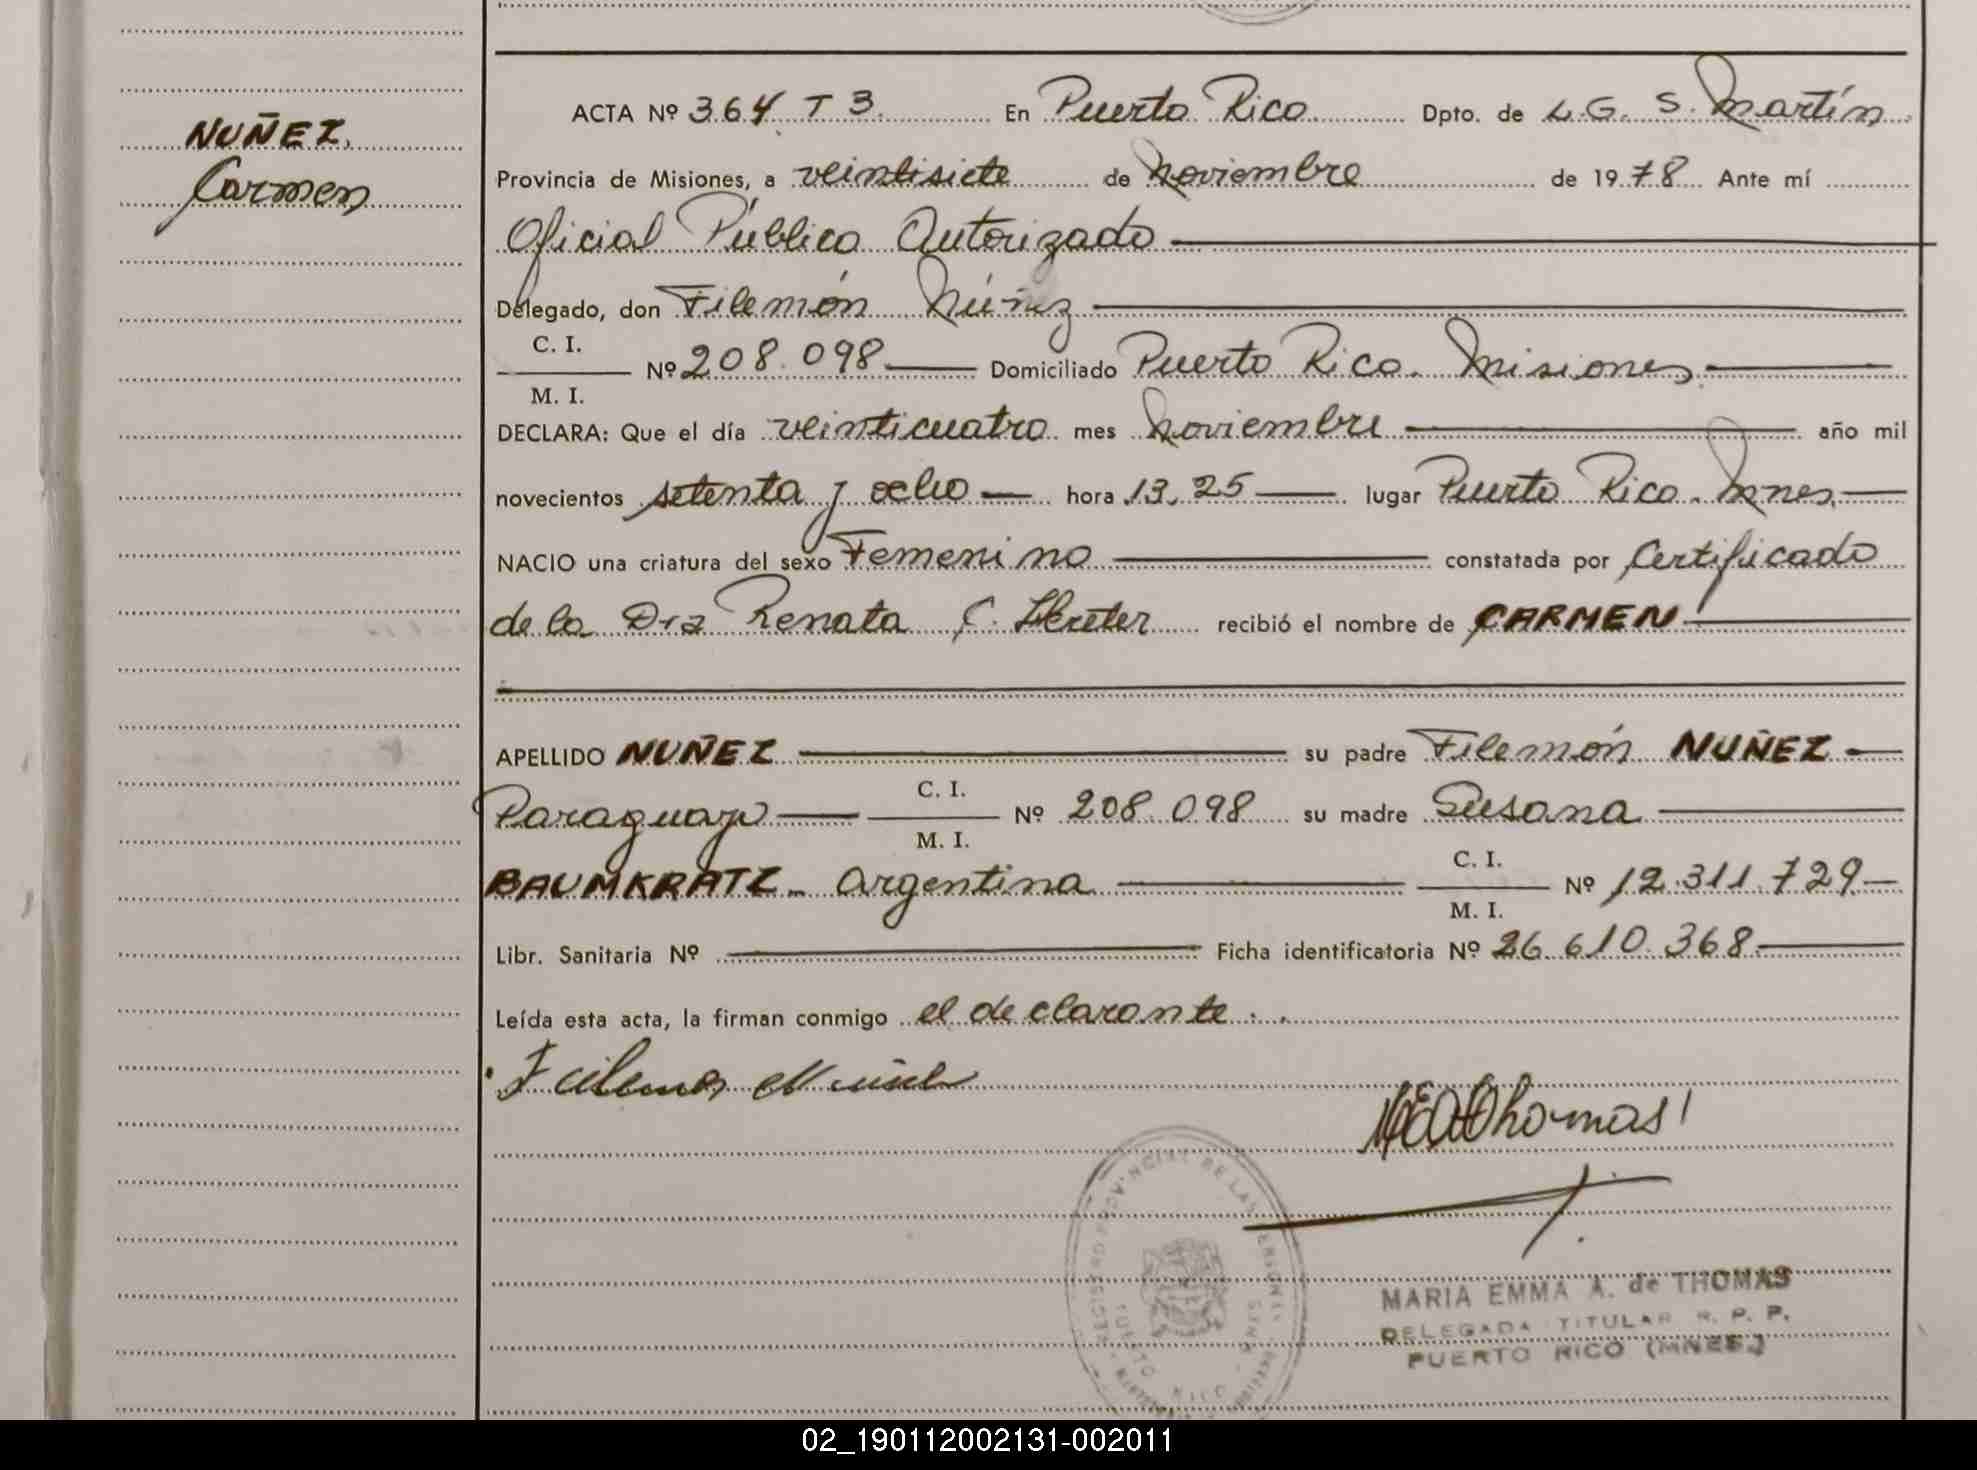 NUÑEZ,
Carmen
ACTA Nº 364 T 3. En Puerto Rico Dpto. de L.G. S. Martín
Provincia de Misiones, a veintisiete de Noviembre de 1978 Ante mí
Oficial Público Autorizado
Delegado, don Filemón Núñez
C. I.
Nº 208.098 Domiciliado Puerto Rico. Misiones
M. I.
DECLARA: Que el día veinticuatro mes Noviembre año mil
novecientos setenta y ocho hora 13,25 lugar Puerto Rico. Mnes.
NACIO una criatura del sexo Femenino constatada por Certificado
de la Dra Renata C. recibió el nombre de CARMEN
APELLIDO NUÑEZ su padre Filemón NUÑEZ
C. I.
Paraguayo Nº 208.098 su madre Susana
M. I.
C. I.
BAUMKRATZ Argentina Nº 12.311.729
M. I.
Libr. Sanitaria Nº Ficha identificatoria Nº 26.610.368
Leída esta acta, la firman conmigo el declarante.
Thomas
REGISTRO PROVINCIAL DE LAS PERSONAS
PUERTO RICO
MARIA EMMA A. de THOMAS
DELEGADA TITULAR R. P. P.
PUERTO RICO (MNES.)
02_190112002131-002011